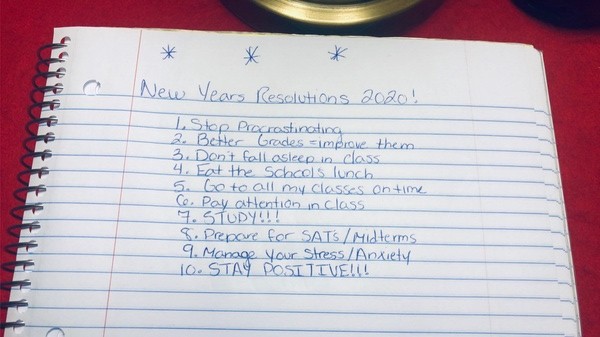 * * *
New Years Resolutions 2020!
1. Stop Procrastinating
2. Better Grades = improve them
3. Don't fall asleep in class
4. Eat the Schools lunch
5. Go to all my classes on time
6. Pay attention in class
7. STUDY!!!
8. Prepare for SATs/Midterms
9. Manage Your Stress/Anxiety
10. STAY POSITIVE!!!